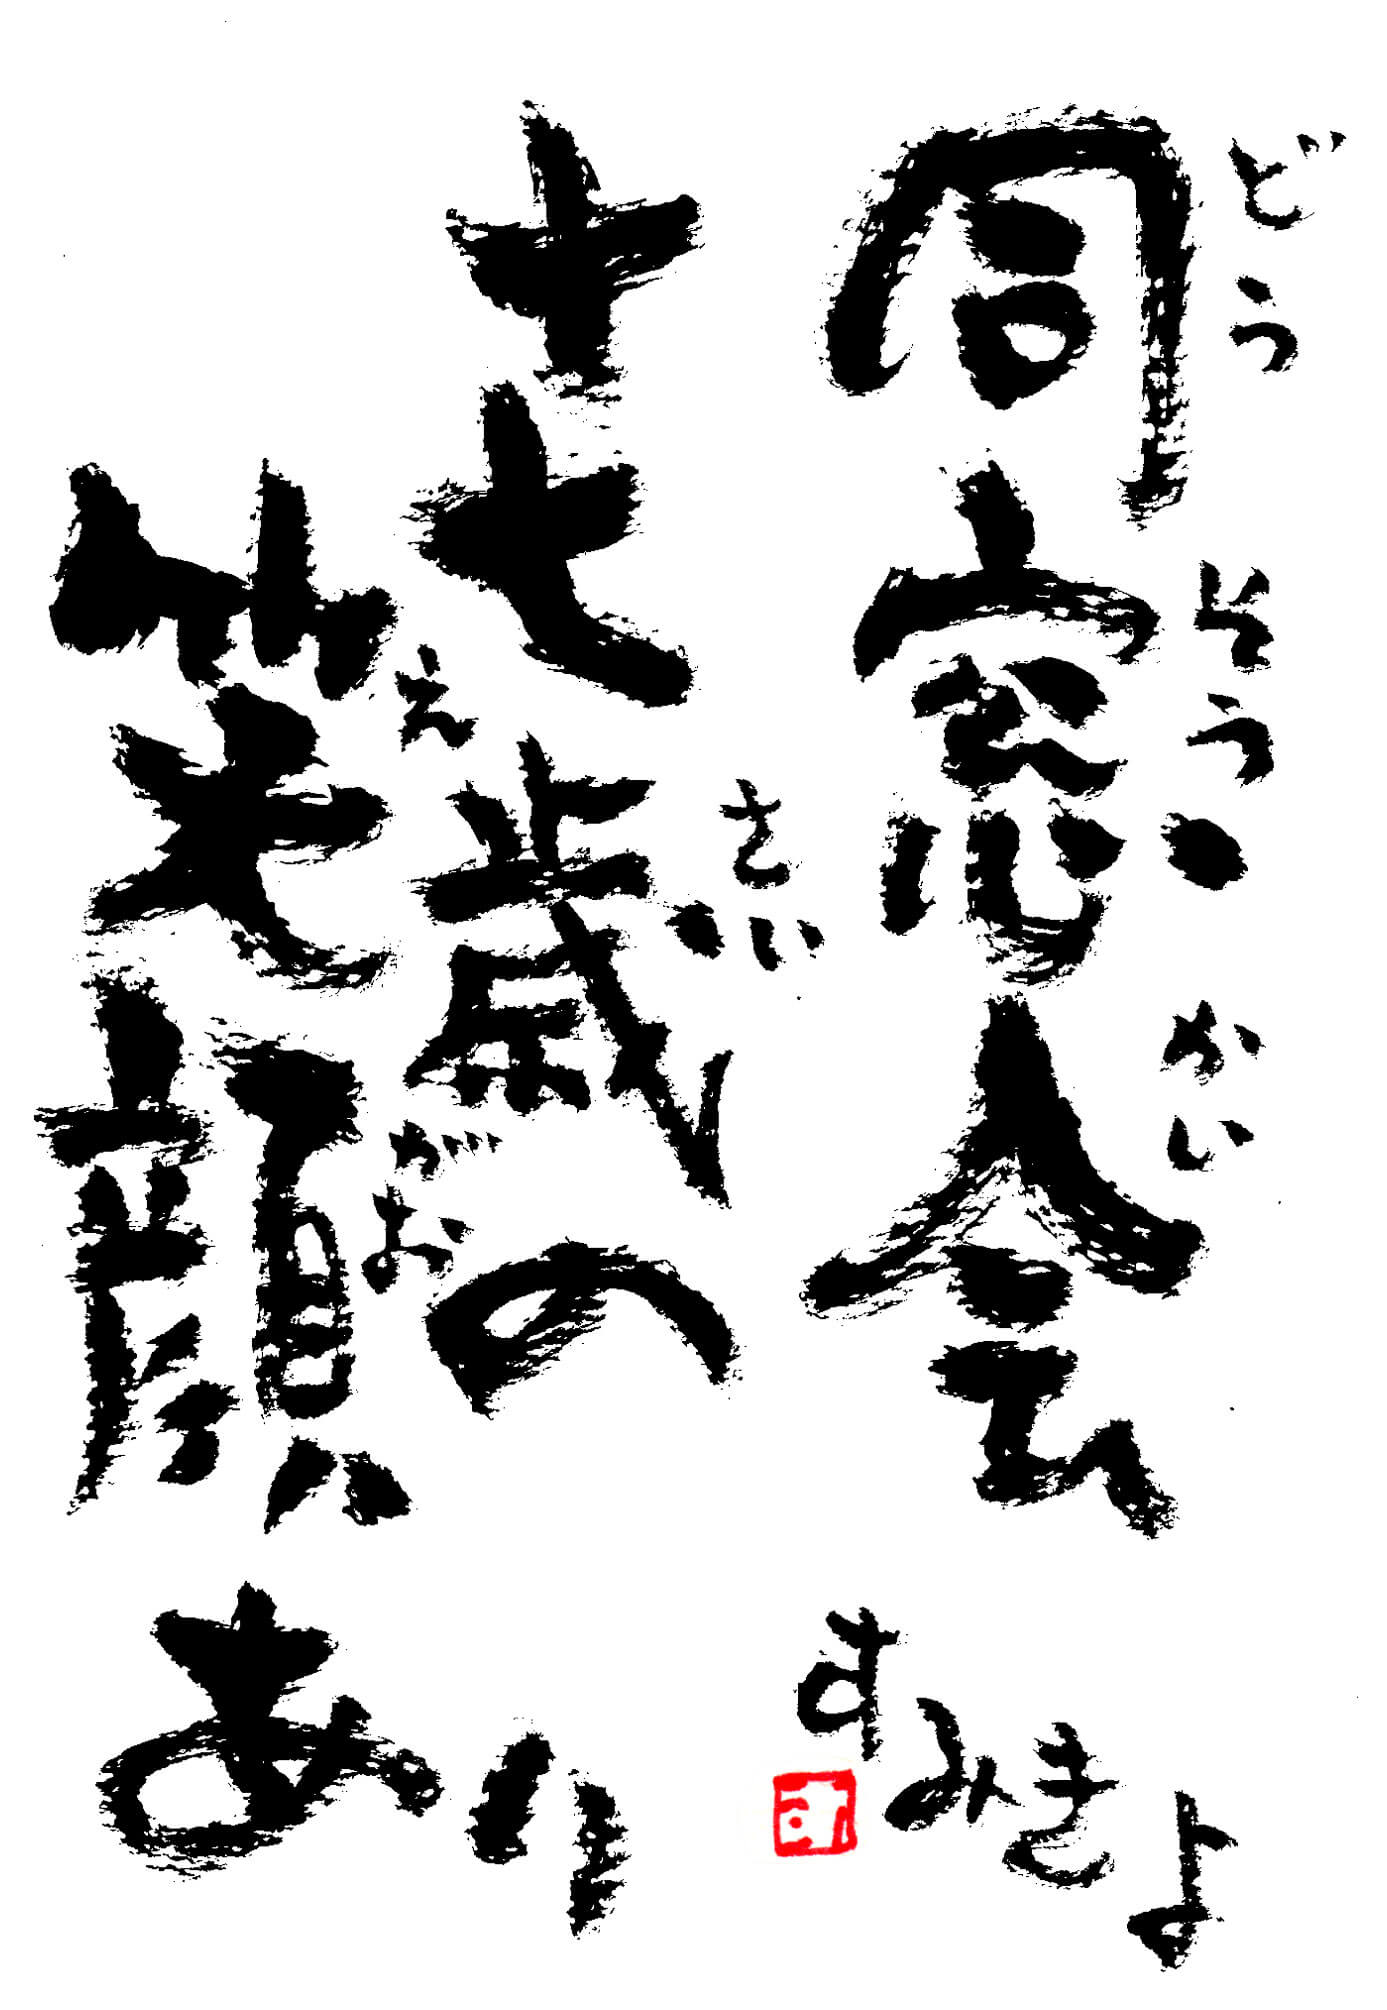 同窓会
どうそうかい
十七歳の
さい
笑顔あり
えがお
すみきよ